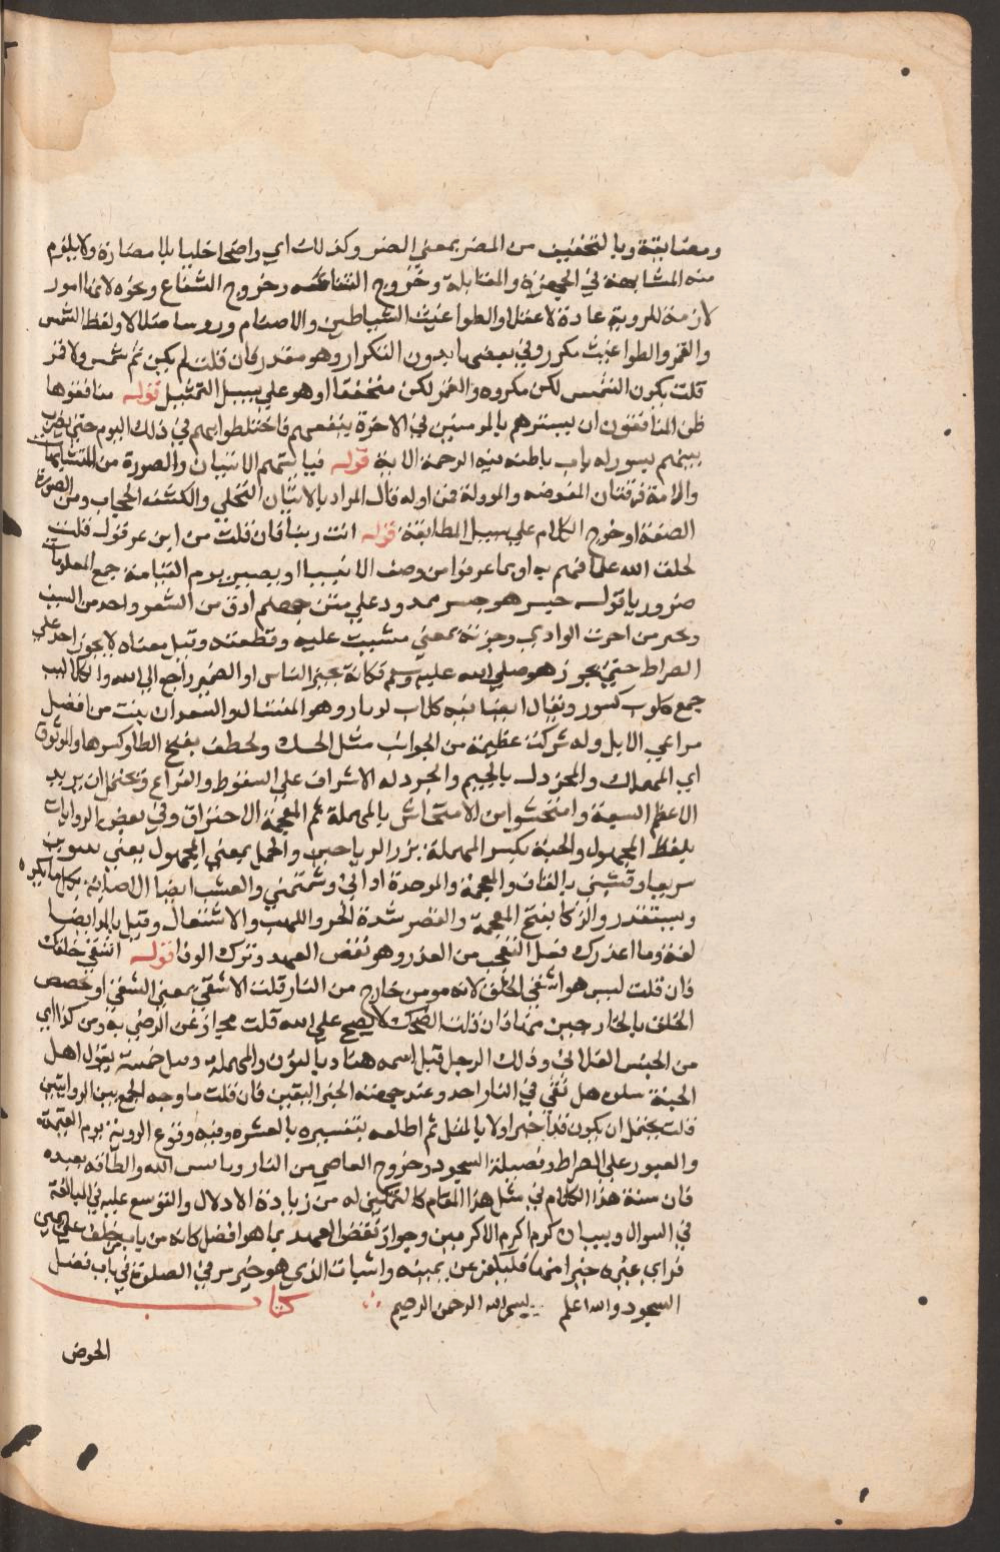 ومضايقة وبالتخفيف من الضير بمعني الضر وكذلك اي واضحا جليا بلا مضارة ولا يلزم
منه المشابهة في الجهة والمقابلة وخروج الشعاع ونحوه لانها امور
لازمة للروية عادة لا عقلا والطواغيت الشياطين والاصنام وروسا الضلال ولفظ الشمس
والقمر والطواغيت مكرر وفي بعضها بدون التكرار وهو مقدر فان قلت لم يكن ثم شمس ولا قمر
قلت يكون الشمس لكن مكورة والقمر لكن منخسفا او هو علي سبيل التمثيل قوله منافقوها
ظن المنافقون ان يسترهم بالمومنين في الاخرة ينفعهم فاختلطوا بهم في ذلك اليوم حتي يضرب
بينهم بسور له باب باطنه فيه الرحمة الاية قوله فياتيهم الاتيان والصورة من المتشابهات
والامة فرقتان المفوضه والموولة فمن اوله قال المراد بالاتيان التجلي والكشف الحجاب ومن الصورة
الصفة او خرج الكلام علي سبيل المطابقة قوله انت ربنا فان قلت من اين عرفوا قلت
لخلق الله علما فيهم به او بما عرفوا من وصف الانبيا او يصير يوم القيامة جميع المعلومات
ضروريا قوله جسر هو جسر ممدود علي متن جهنم ادق من الشعر واحد من السيف
ويجيز من اجزت الوادي وجزته بمعني مشيت عليه وقطعته وقيل معناه لا يجوز احد علي
الصراط حتي يجوز هو صلي الله عليه وسلم فكانه يجيز الناس او الضمير راجع الي الله والكلاليب
جمع كلوب كتنور ويقال ايضا فيه كلاب وهو المنشال والسعدان نبت من افضل
مراعي الابل وله شوكة عظيمة من الجوانب مثل الحسك ولخطف بفتح الطا وكسرها والموثوق
اي المهلك والمخردل بالجيم والجردله الاشراف علي السقوط والفراغ ويحتمل ان يريد
الاعظم السبعة وامتحشوا من الامتحاش بالمهملة ثم المعجمة الاحتراق وفي بعض الروايات
بلفظ المجهول والحبة بكسر المهملة بزر الرياحين والحمل بمعني المحمول يعني
سريعا وقشبني بالقاف والمعجمة والموحدة اذاني وشممني والعشب ايضا الاصابة بكل ما يكره
ويستقذر والذكا بفتح المعجمة والقصر شدة الحر واللهب والاشتعال وقيل بالمد ايضا
لغة وما اغدرك فعل التعجب من الغدر وهو نقض العهد وترك الوفا قوله اشقي خلقك
فان قلت ليس هو اشقي الخلق لانه مومن خارج من النار قلت الاشقي بمعني الشقي او خصص
الخلق بالخارجين منها فان قلت الضحك لا يصح علي الله قلت مجاز عن الرضي به ومن كذا اي
من الجنس الفلاني وذلك الرجل قيل اسمه هناد بالنون والمهملة
الجنة سلوه هل بقي في النار احد وعند جهينة الخبر اليقين فان قلت ما وجه الجمع بين الروايتين
قلت يحتمل ان يكون قد اخبر اولا بالمثل ثم اطلعه بتفسيره بالعشره وفيه وقوع الروية يوم القيمة
والعبور علي الصراط وفضيلة السجود وخروج العاصي من النار والطافه بعبده
فان سنة هذا الكلام في مثل هذا المقام كالتمكين له من زيادة الادلال والتوسع عليه في المبالغة
في السوال وبيان كرم اكرم الاكرمين وجواز نقض العهد بما هو افضل كانه من باب من خلف علي يمين
فراي غيره خيرا منها فليكفر عن يمينه واتيات الذي هو خير مر في الصلوة في باب فضل
السجود والله اعلم بسم الله الرحمن الرحيم كتاب
الحوض